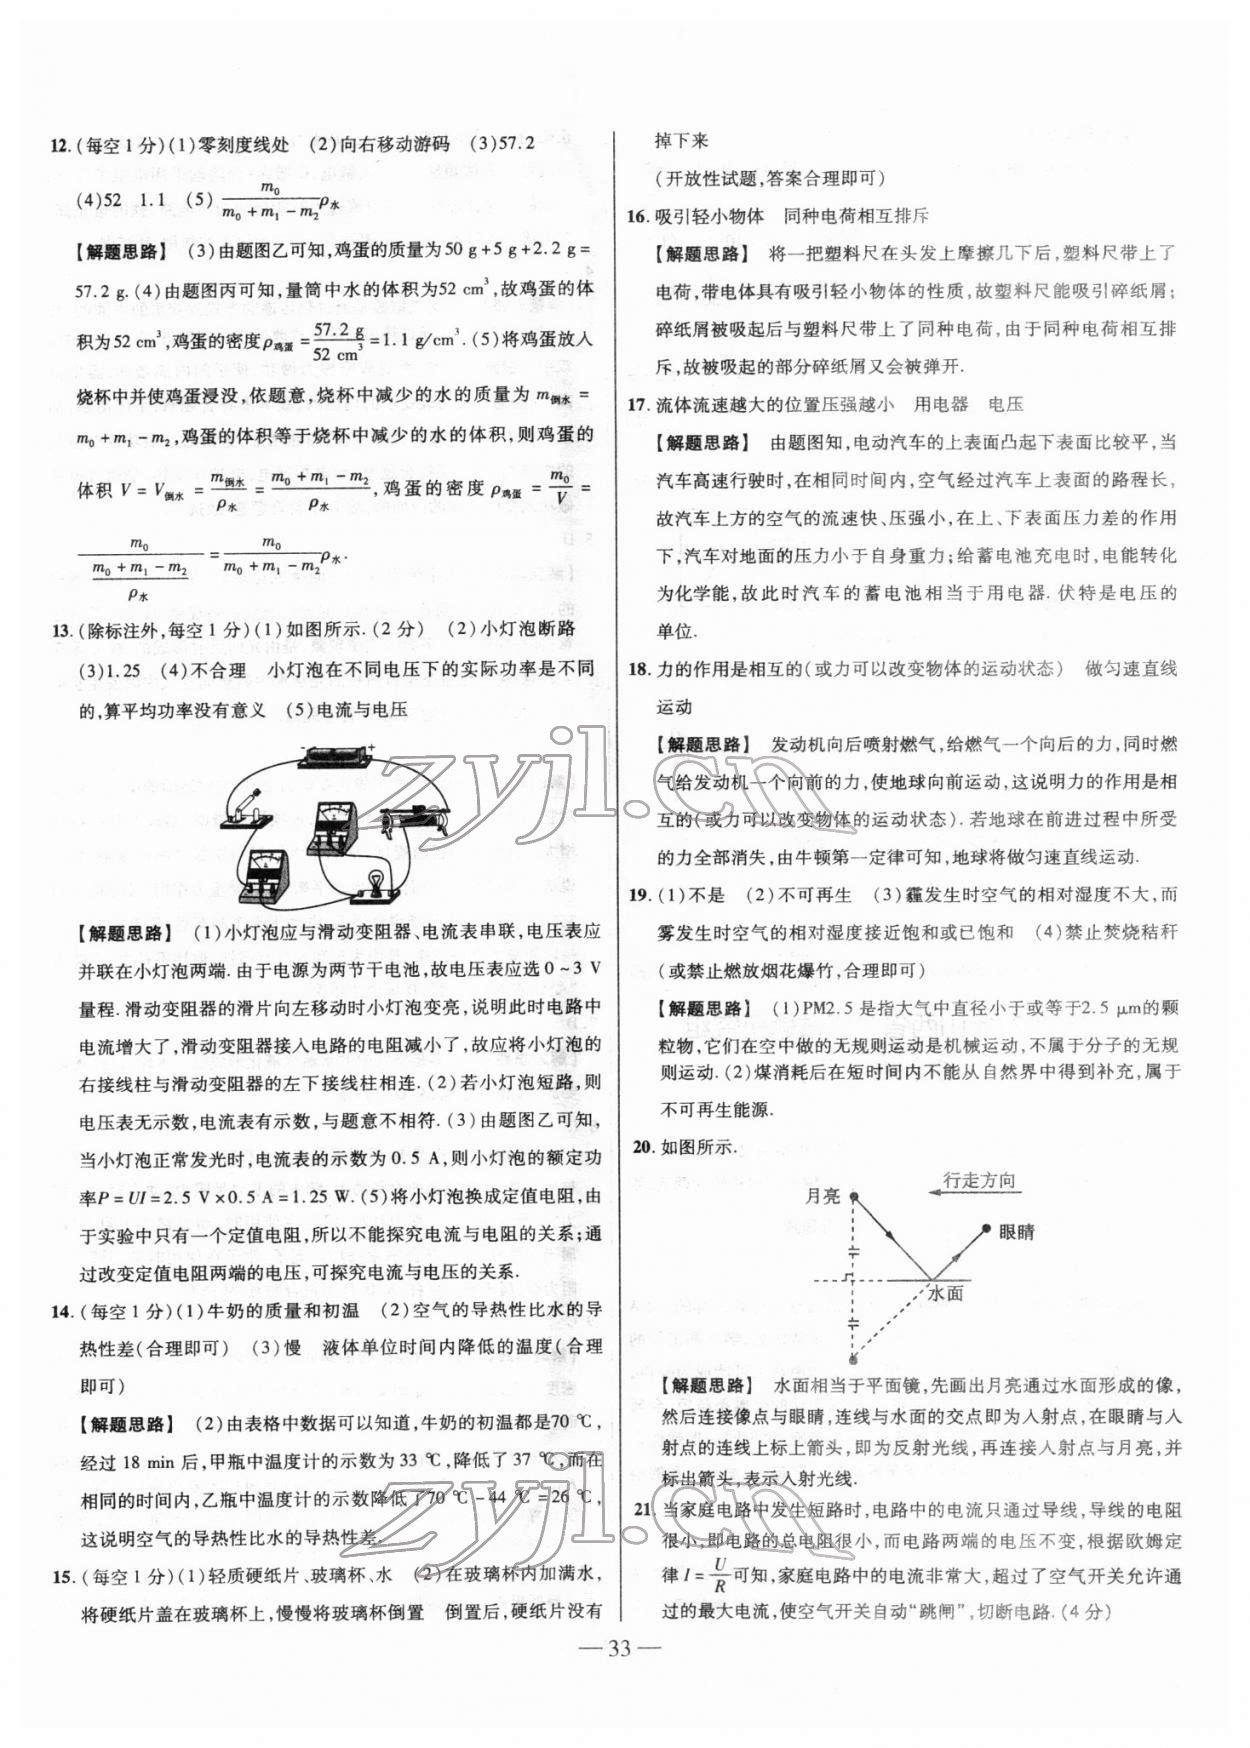 12. (每空1分)(1)零刻度线处 (2)向右移动游码 (3)57.2
(4)52 1.1 (5) m₀/(m₀+m₁-m₂) ρ水
【解题思路】 (3)由题图乙可知,鸡蛋的质量为50 g+5 g+2.2 g=
57.2 g. (4)由题图丙可知,量筒中水的体积为52 cm³,故鸡蛋的体
积为52 cm³,鸡蛋的密度ρ鸡蛋=57.2 g/52 cm³=1.1 g/cm³. (5)将鸡蛋放入
烧杯中并使鸡蛋浸没,依题意,烧杯中减少的水的质量为m倒水=
m₀+m₁-m₂,鸡蛋的体积等于烧杯中减少的水的体积,则鸡蛋的
体积V=V倒水=m倒水/ρ水=(m₀+m₁-m₂)/ρ水,鸡蛋的密度ρ鸡蛋=m₀/V=
m₀/((m₀+m₁-m₂)/ρ水)=m₀/(m₀+m₁-m₂) ρ水.
13. (除标注外,每空1分)(1)如图所示. (2分) (2)小灯泡断路
(3)1.25 (4)不合理 小灯泡在不同电压下的实际功率是不同
的,算平均功率没有意义 (5)电流与电压
- +
【解题思路】 (1)小灯泡应与滑动变阻器、电流表串联,电压表应
并联在小灯泡两端. 由于电源为两节干电池,故电压表应选0~3 V
量程. 滑动变阻器的滑片向左移动时小灯泡变亮,说明此时电路中
电流增大了,滑动变阻器接入电路的电阻减小了,故应将小灯泡的
右接线柱与滑动变阻器的左下接线柱相连. (2)若小灯泡短路,则
电压表无示数,电流表有示数,与题意不相符. (3)由题图乙可知,
当小灯泡正常发光时,电流表的示数为0.5 A,则小灯泡的额定功
率P=UI=2.5 V×0.5 A=1.25 W. (5)将小灯泡换成定值电阻,由
于实验中只有一个定值电阻,所以不能探究电流与电阻的关系;通
过改变定值电阻两端的电压,可探究电流与电压的关系.
14. (每空1分)(1)牛奶的质量和初温 (2)空气的导热性比水的导
热性差(合理即可) (3)慢 液体单位时间内降低的温度(合理
即可)
【解题思路】 (2)由表格中数据可以知道,牛奶的初温都是70 ℃,
经过18 min后,甲瓶中温度计的示数为33 ℃,降低了37 ℃,而在
相同的时间内,乙瓶中温度计的示数降低了70 ℃-44 ℃=26 ℃,
这说明空气的导热性比水的导热性差.
15. (每空1分)(1)轻质硬纸片、玻璃杯、水 (2)在玻璃杯内加满水,
将硬纸片盖在玻璃杯上,慢慢将玻璃杯倒置 倒置后,硬纸片没有
掉下来
(开放性试题,答案合理即可)
16. 吸引轻小物体 同种电荷相互排斥
【解题思路】 将一把塑料尺在头发上摩擦几下后,塑料尺带上了
电荷,带电体具有吸引轻小物体的性质,故塑料尺能吸引碎纸屑;
碎纸屑被吸起后与塑料尺带上了同种电荷,由于同种电荷相互排
斥,故被吸起的部分碎纸屑又会被弹开.
17. 流体流速越大的位置压强越小 用电器 电压
【解题思路】 由题图知,电动汽车的上表面凸起下表面比较平,当
汽车高速行驶时,在相同时间内,空气经过汽车上表面的路程长,
故汽车上方的空气的流速快、压强小,在上、下表面压力差的作用
下,汽车对地面的压力小于自身重力;给蓄电池充电时,电能转化
为化学能,故此时汽车的蓄电池相当于用电器. 伏特是电压的
单位.
18. 力的作用是相互的(或力可以改变物体的运动状态) 做匀速直线
运动
【解题思路】 发动机向后喷射燃气,给燃气一个向后的力,同时燃
气给发动机一个向前的力,使地球向前运动,这说明力的作用是相
互的(或力可以改变物体的运动状态). 若地球在前进过程中所受
的力全部消失,由牛顿第一定律可知,地球将做匀速直线运动.
19. (1)不是 (2)不可再生 (3)霾发生时空气的相对湿度不大,而
雾发生时空气的相对湿度接近饱和或已饱和 (4)禁止焚烧秸秆
(或禁止燃放烟花爆竹,合理即可)
【解题思路】 (1)PM2.5是指大气中直径小于或等于2.5 μm的颗
粒物,它们在空中做的无规则运动是机械运动,不属于分子的无规
则运动. (2)煤消耗后在短时间内不能从自然界中得到补充,属于
不可再生能源.
20. 如图所示.
行走方向
月亮
眼睛
水面
【解题思路】 水面相当于平面镜,先画出月亮通过水面形成的像,
然后连接像点与眼睛,连线与水面的交点即为入射点,在眼睛与入
射点的连线上标上箭头,即为反射光线,再连接入射点与月亮,并
标出箭头,表示入射光线.
21. 当家庭电路中发生短路时,电路中的电流只通过导线,导线的电阻
很小,即电路的总电阻很小,而电路两端的电压不变,根据欧姆定
律I=U/R可知,家庭电路中的电流非常大,超过了空气开关允许通
过的最大电流,使空气开关自动“跳闸”,切断电路. (4分)
— 33 —
zyjl.cn
zyjl.cn